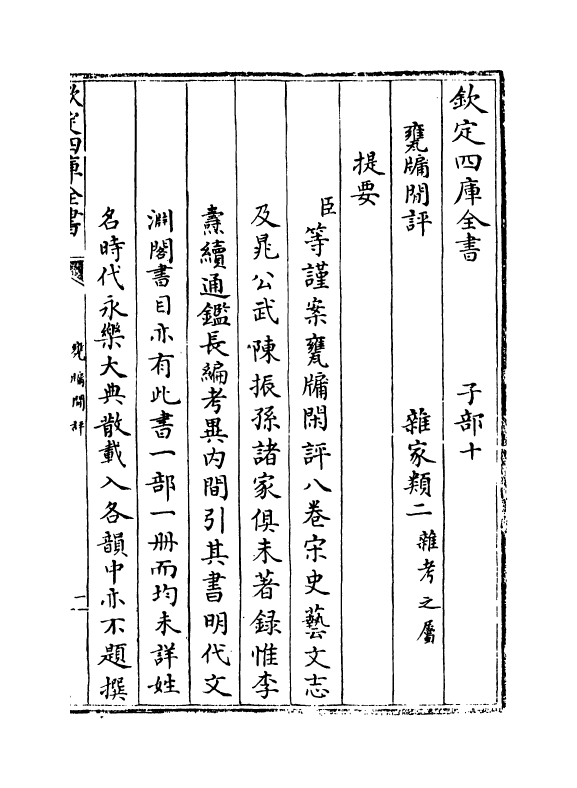 欽定四庫全書　子部十
甕牖閒評　雜家類二雜考之屬
提要
臣等謹案甕牖閒評八卷宋史藝文志
及晁公武陳振孫諸家俱未著録惟李
燾續通鑑長編考異内間引其書明代文
淵閣書目亦有此書一部一册而均未詳姓
名時代永樂大典散載入各韻中亦不題撰
欽定四庫全書
甕牖閒評